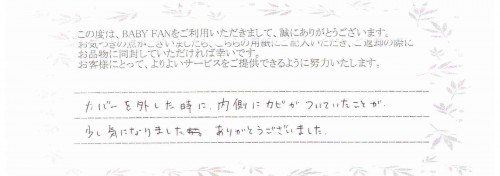 この度は、BABY FANをご利用いただきまして、誠にありがとうございます。
お気づきの点がございましたら、こちらの用紙にご記入いただき、ご返却の際に
お品物に同封していただければ幸いです。
お客様にとって、よりよいサービスをご提供できるように努力いたします。
カバーを外した時に、内側にカビがついていたことが、
少し気になりました ありがとうございました。